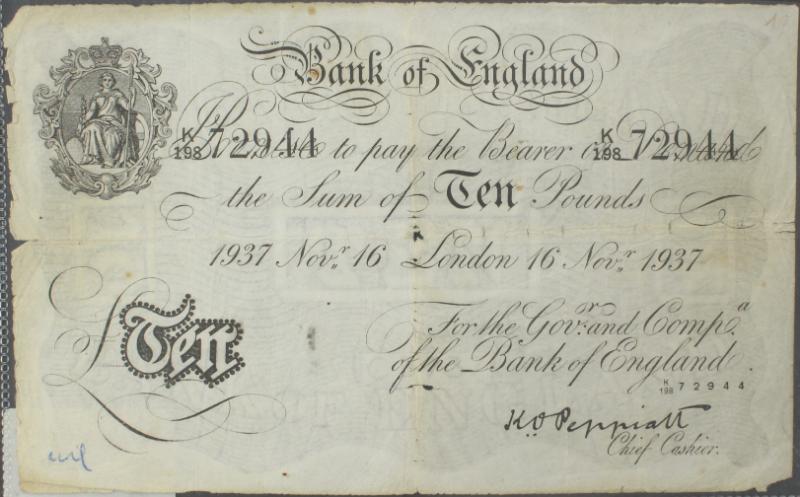 Bank of England
K/198 72944 K/198 72944
I Promise to pay the Bearer on Demand
the Sum of Ten Pounds
K
1937 Novr. 16 London 16 Novr. 1937
For the Govr. and Compa.
of the Bank of England.
£Ten
K/198 72944
K.O Peppiatt
Chief Cashier.